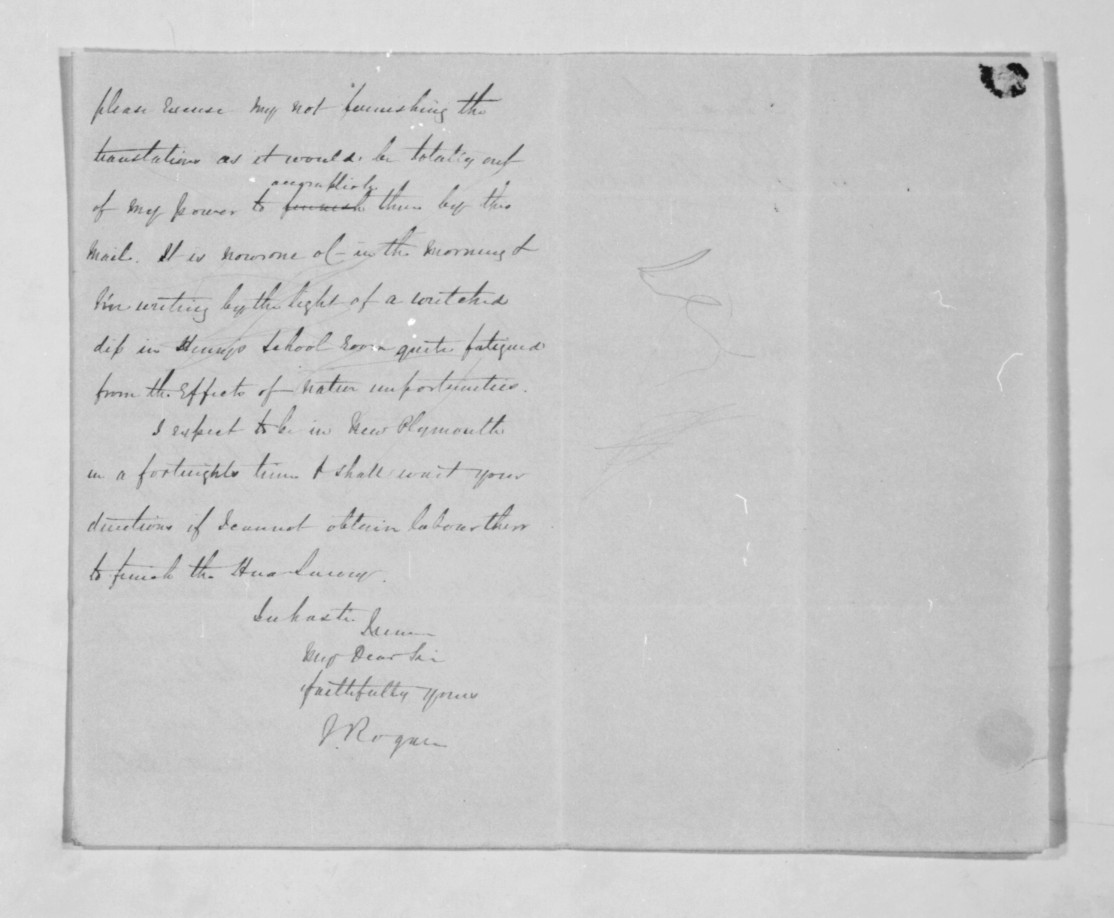 please excuse my not furnishing the
translations as it would be totally out
of my power to furnish them by this
mail. It is now one o(- in the morning &
I'm writing by the light of a wretched
dip in Henry's School Room quite fatigued
from the effects of native importunities.
I expect to be in New Plymouth
in a fortnights time & shall wait your
directions if I cannot obtain labour there
to finish the Hua Survey.
In haste
My Dear Sir
faithfully yours
J. Rogan